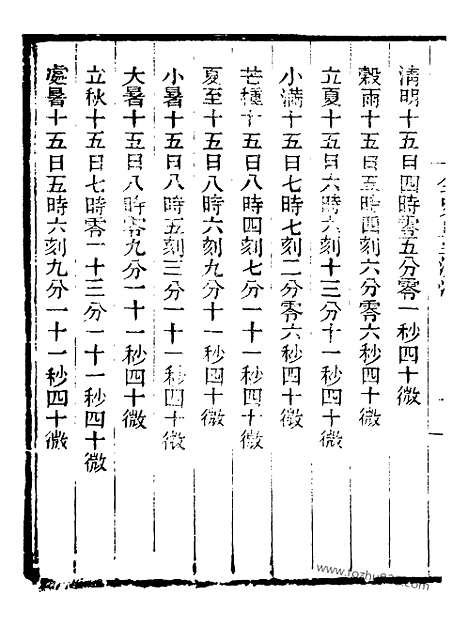 清明十五日四時零五分零一秒四十微
穀雨十五日五時四刻六分零六秒四十微
立夏十五日六時六刻十三分十一秒四十微
小滿十五日七時七刻二分零六秒四十微
芒種十五日八時四刻七分一十一秒四十微
夏至十五日八時六刻九分十一秒四十微
小暑十五日八時五刻三分一十一秒四十微
大暑十五日八時零九分一十一秒四十微
立秋十五日七時零一十三分一十一秒四十微
處暑十五日五時六刻九分一十一秒四十微